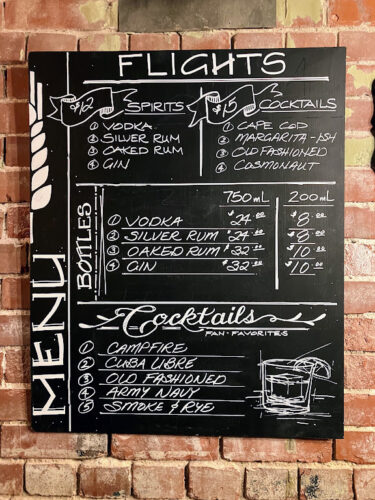 FLIGHTS
$12 SPIRITS
① VODKA
② SILVER RUM
③ OAKED RUM
④ GIN
$15 COCKTAILS
① CAPE COD
② MARGARITA-ISH
③ OLD FASHIONED
④ COSMONAUT
MENU
BOTTLES
750 mL 200 mL
① VODKA $24.00 $8.00
② SILVER RUM $24.00 $8.00
③ OAKED RUM $32.00 $10.00
④ GIN $32.00 $10.00
Cocktails
FAN·FAVORITES
① CAMPFIRE
② CUBA LIBRE
③ OLD FASHIONED
④ ARMY NAVY
⑤ SMOKE & RYE